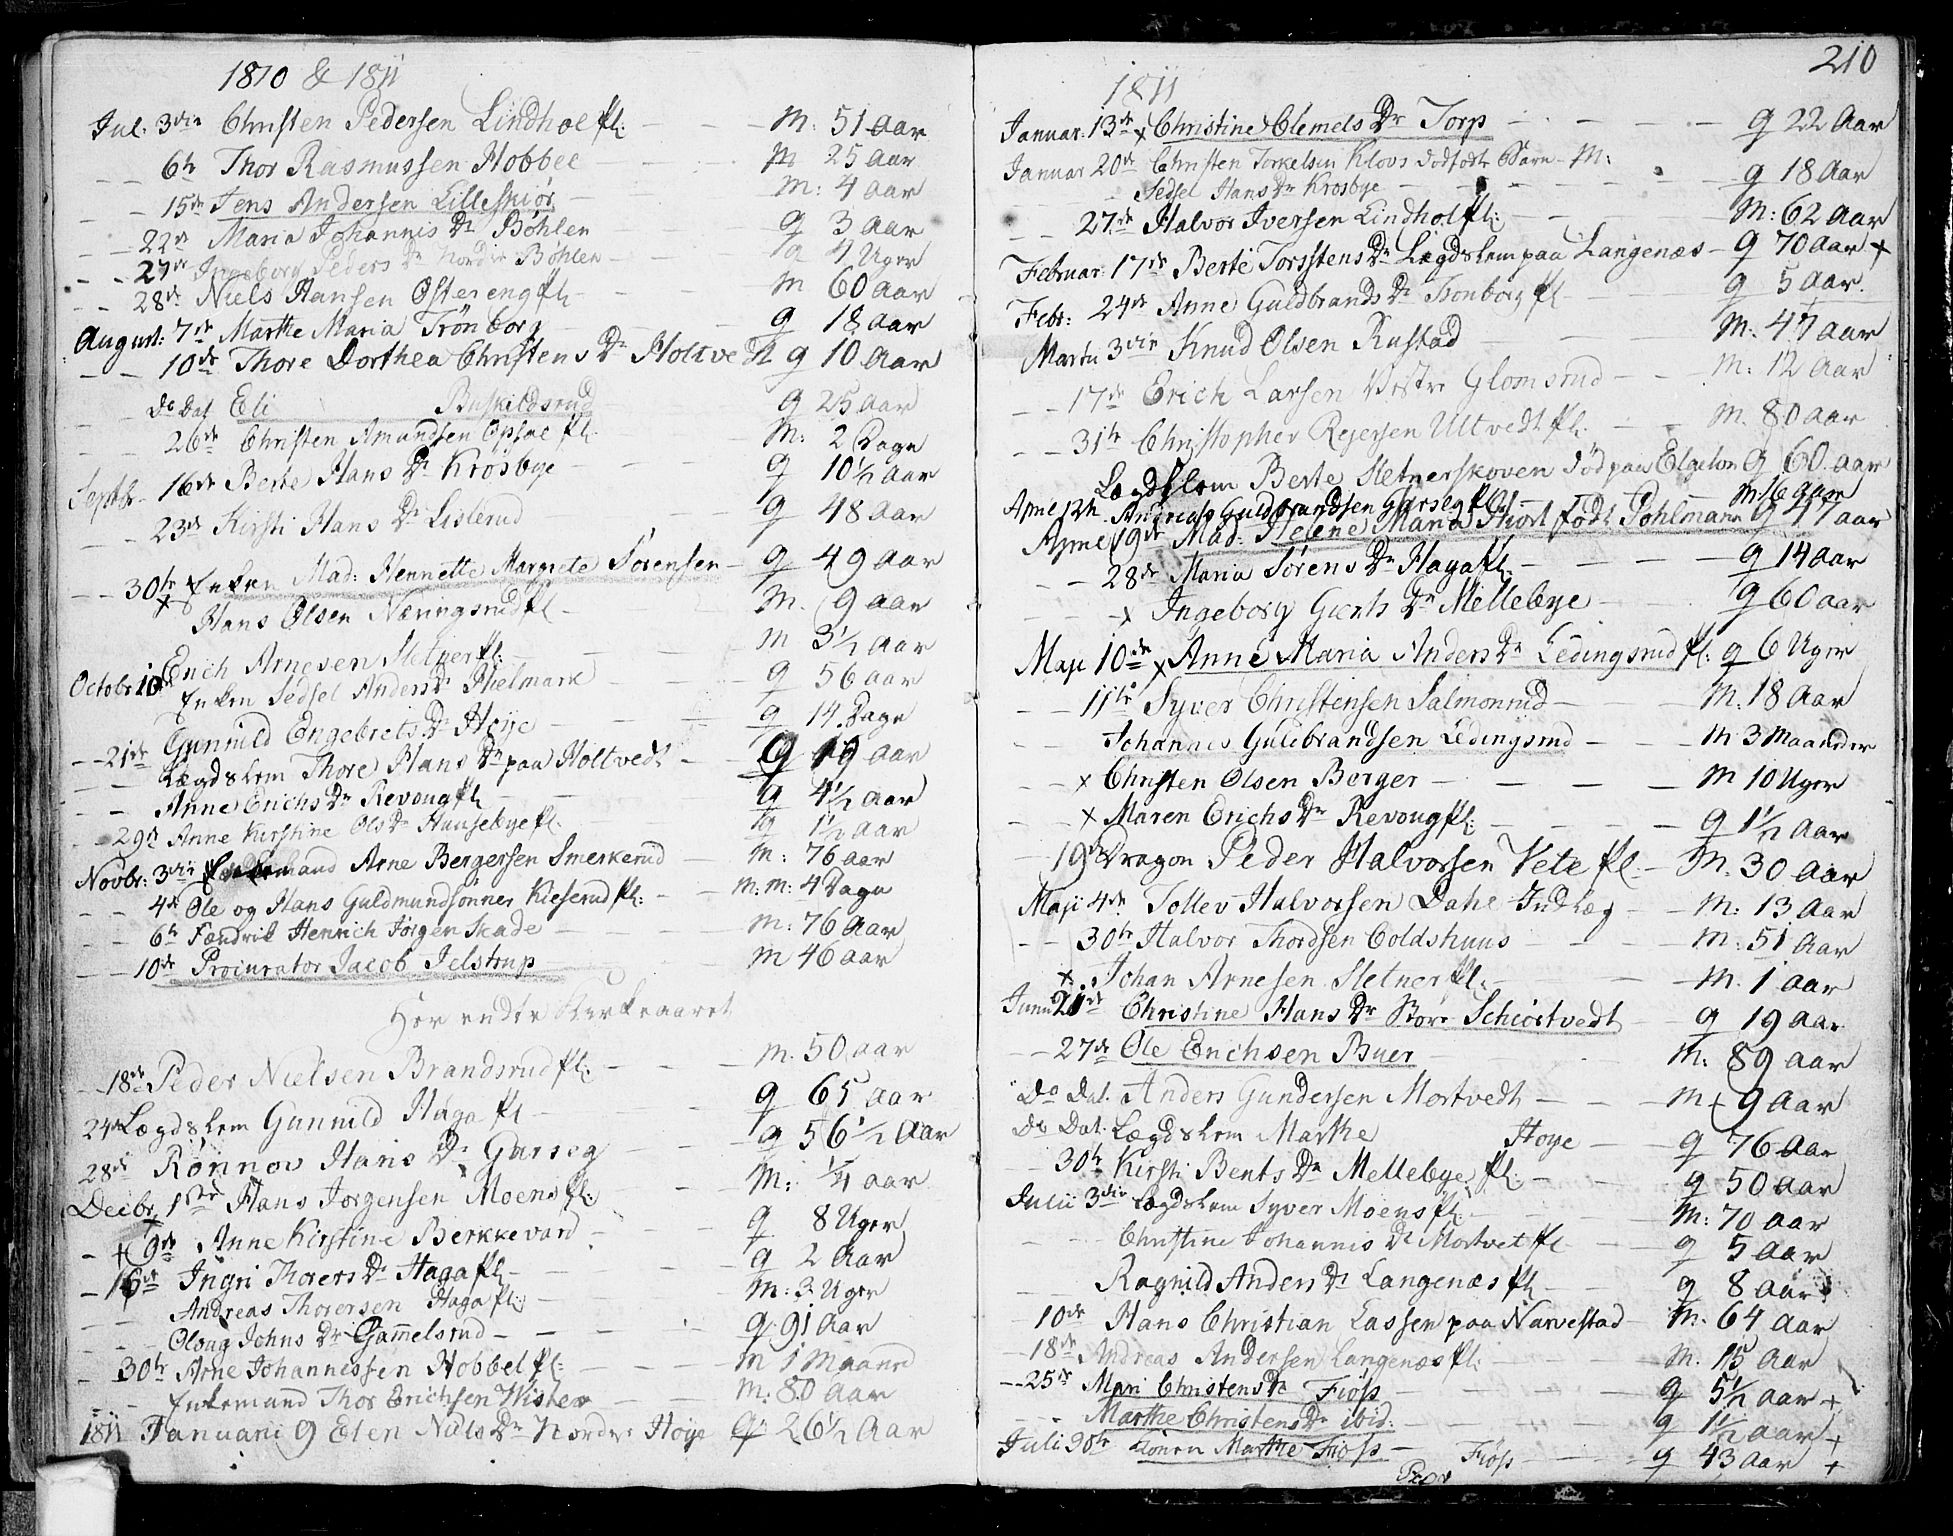 1810 & 1811
Jul. 3die Christen Pedersen Lindhol Pl: M: 51 Aar
6te Thor Rasmussen Hobbel M 25 Aar
15de Jens Andersen Lilleskiør M: 4 Aar
22de Maria Johannis Dr Bøhlen q 3 Aar
27de Ingeborg Peders Dr Nordre Bøhlen q 4 Uger
28de Niels Hansen Østereng pl M 60 Aar
August: 7de Marthe Maria Trönborg q 18 Aar
10de Thore Dorthea Christens Dr Holtvedt q 10 Aar
do Dat Eli Buskildsrud q 25 Aar
26de Christen Amundsen Opsal pl. M: 2 Dage
Septbr 16de Berte Hans Dr Krösbye q 10½ Aar
23de Kirsti Hans Dr Lislerud q 48 Aar
30te Enken Mad: Hennette Margrete Sörensen q 49 Aar
x Hans Olsen Næringsrud pl M. 9 Aar
Erich Arnesen Sletner pl: M 3½ Aar
Octobr 10de Enken Sedsel Anders Dr Hielmark q 56 Aar
Gunnild Engebrets Dr Høye q 14 Dage
21de Lægdslem Thore Hans Dr paa Holtvedt q 19 Aar
Anne Erichs Dr Revoug pl q 4½ Aar
29de Anne Kirstine Ols Dr Huusebye pl. q 1½ Aar
Novbr: 3die Enkemand Arne Bergersen Smerkerud M: 76 Aar
4de Ole og Hans Guldmundsönner Kieserud pl: M: M: 4 Dage
6te Fændrik Henrich Jörgen Skade M: 76 Aar
10de Procurator Jacob Jelstrup M 46 Aar
Her endte Kirkeaaret
18de Peder Nielsen Brandsrud pl: M. 50 Aar
24de Lægdslem Gunnild Haga pl q 65 Aar
28de Rönnov Hans Dr Garseg q 56½ Aar
Decbr 1ste Hans Jörgensen Moens pl: M: ¼ Aar
+ 9de Anne Kirstine Berkkevard q 8 Uger
16de Ingri Thorers Dr Haga pl q 2 Aar
Andreas Thorersen Haga pl: M: 3 Uger
Oloug Johns Dr Gammelsrud q 91 Aar
30te Arne Johannessen Hobbel pl: M 1 Maaned
Enkemand Thor Erichsen Wister M: 80 Aar
1811 Januarii 9 Elen Niels Dr Nordre Høye q 26½ Aar
210
1811
Januar: 13de x Christine Clemets Dr Torp q 22 Aar
Januar 20de Christen Torkelsen Klovs dödfödt Barn M:
Sedsel Hans Dr Krosbye q 18 Aar
27de Halvor Iversen Lindhol pl: M: 62 Aar
Februar 17de Berte Torstens Dr Lægdslem paa Langenæs q 70 Aar +
Febr: 24de Anne Guldbrands Dr Tronborg pl q 5 Aar.
Martii 3die Knud Olsen Rustad M: 47 Aar
17de Erich Larsen Vestre Glomsrud M: 12 Aar
31te Christopher Rejersen Ultvedt pl: M. 80 Aar
Lægdslem Berte Sletnerskoven död paa Elgeton q 60 Aar
April 12te Andreas Guldbrandsen Garseg pl: M 16 Aar
April 19de Mad: Helene Maria Hiort födt Pohlmann q 47 Aar
28de Maria Sörens Dr Haga pl: q 14 Aar
x Ingeborg Gierts Dr Mellebye q 60 Aar
Maji 10de x Anne Maria Anders Dr Ledingsrud pl: q 6 Uger
11te Syver Christensen Salmonrud M. 18 Aar
Johannes Guldbrandsen Ledingsrud M 3 Maaneder
x Christen Olsen Berger M 10 Uger
x Maren Erichs Dr Revoug pl: q 1½ Aar
19de Dragon Peder Halvorsen Vete pl M. 30 Aar
Maji 4de Tollev Halvorsen Dahl Indlæg M: 13 Aar
30te Halvor Thordsen Coldshuus M: 51 Aar
x Johan Arnesen Sletner pl: M. 1 Aar
Junii 21de Christine Hans Dr Store Schiöstvedt q 19 Aar
27de Ole Erichsen Buer M: 89 Aar
Do Dat. Anders Gundersen Mortvedt M. 9 Aar
Do Dat. Lægdslem Marthe Høye q 76 Aar
30te Kirsti Bents Dr Mellebye pl: q 50 Aar
Julii 3die Lægdslem Syver Moens pl: M: 70 Aar
Christine Johannis Dr Mortvet pl q 5 Aar
Ragnild Anders Dr Langenæs pl q 8 Aar
10de Hans Christian Lassen paa Narvestad M. 64 Aar
18de Andreas Andersen Langenæs pl: M. 15 Aar
25de Mari Christens Dr Fiöss q 5½ Aar +
Marthe Christens Dr ibid: q 1½ Aar +
Juli 30te Konen Marthe Fiöss Fiöss q 43 Aar +